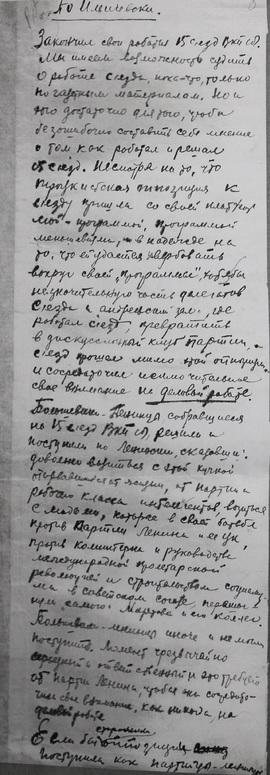 По Ильичевски.
Закончил свои работы 15 съезд ВКП(б).
Мы имеем возможность судить
о работе съезда, пока-что, только
по газетным материалам. Но и
это достаточно для того, чтобы
безошибочно составить себе мнение
о том как работал и решал
15 съезд. Несмотря на то, что
троцкистская оппозиция к
съезду пришла со своей платфор
мой - программой, программой
меньшевизма, - в надежде на
то, что ей удастся завербовать
вокруг своей "программы" хотя бы
незначительную часть делегатов
съезда и зал, где
работал съезд, превратить
в дискуссионный клуб партии, -
съезд прошел мимо этой оппозиции
и сосредоточил исключительное
свое внимание на деловой работе.
Большевики-Ленинцы собравшиеся
на 15 съезд ВКП(б), решили и
поступили по Ленински, сказавши:
довольно возиться с этой кучкой
оторвавшихся от жизни, от партии и
рабочего класса интеллигентов, возиться
с людьми, которые в своей борьбе
против партии Ленина и ее ЦК,
против коминтерна и руководства
международной пролетарской
революцией и строительством социализ
ма в советском союзе,
самого Мартова и его коллег.
Большевики-ленинцы иначе и не могли
поступить. Момент чрезвычайно
серьезный и ответственный и это требует
от партии Ленина, чтобы она сосредо-
точила свое внимание, как никогда, на
деловой работе
Если бы оппозиция
поступила как партия-ленинцы